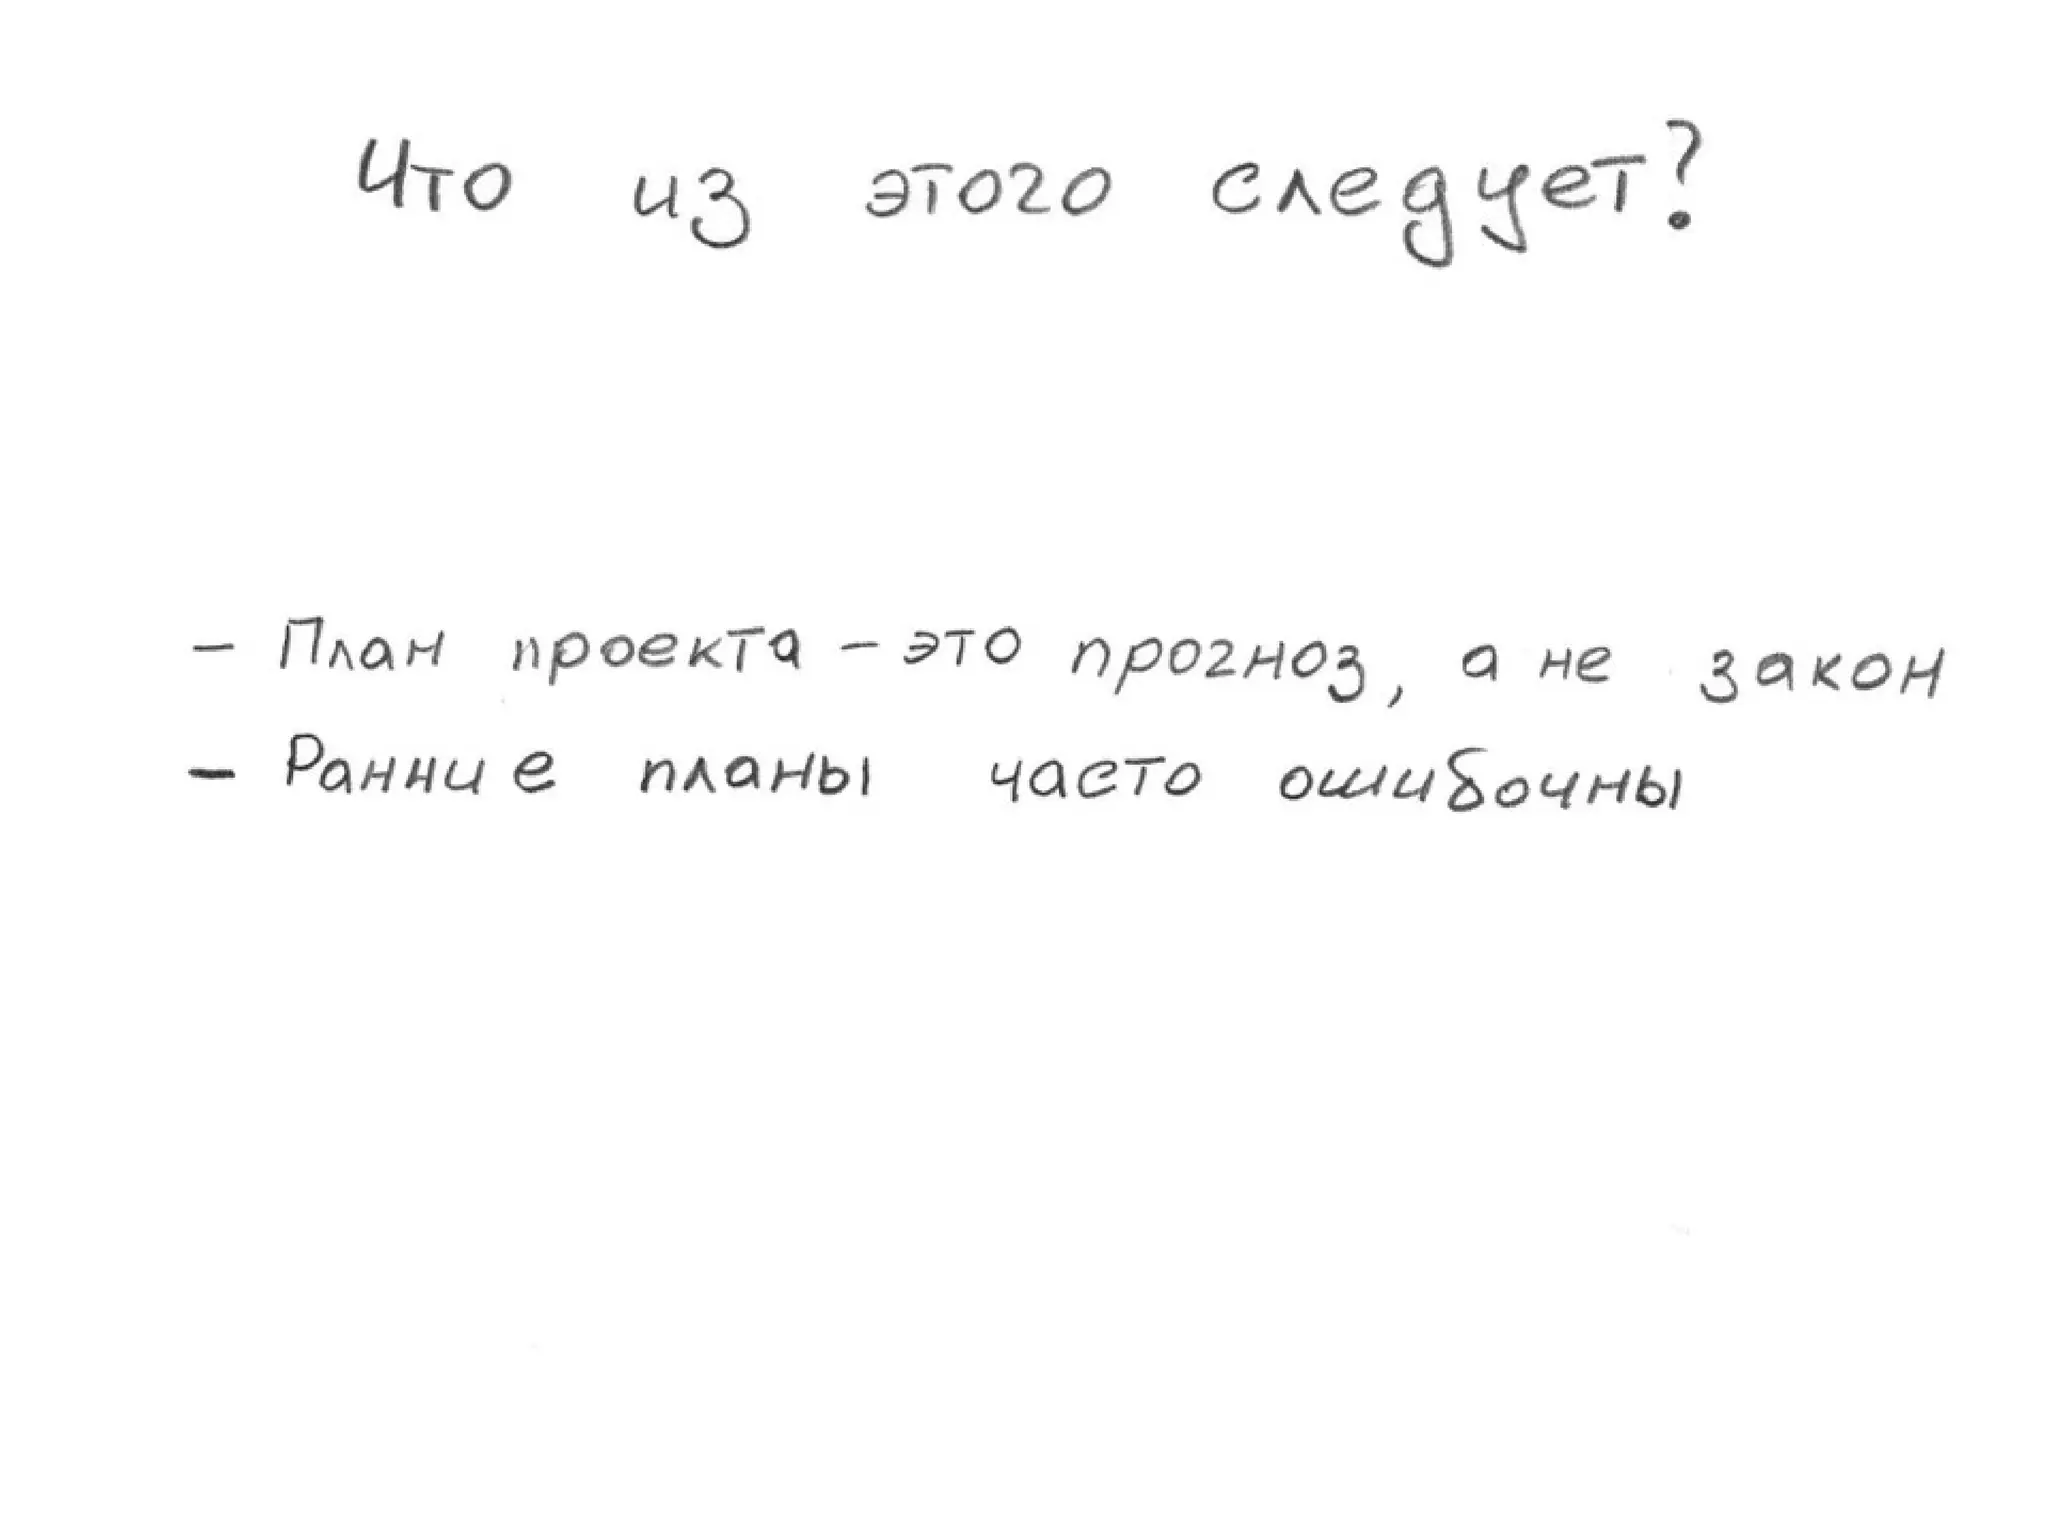 Что из этого следует?
- План проекта - это прогноз, а не закон
- Ранние планы часто ошибочны